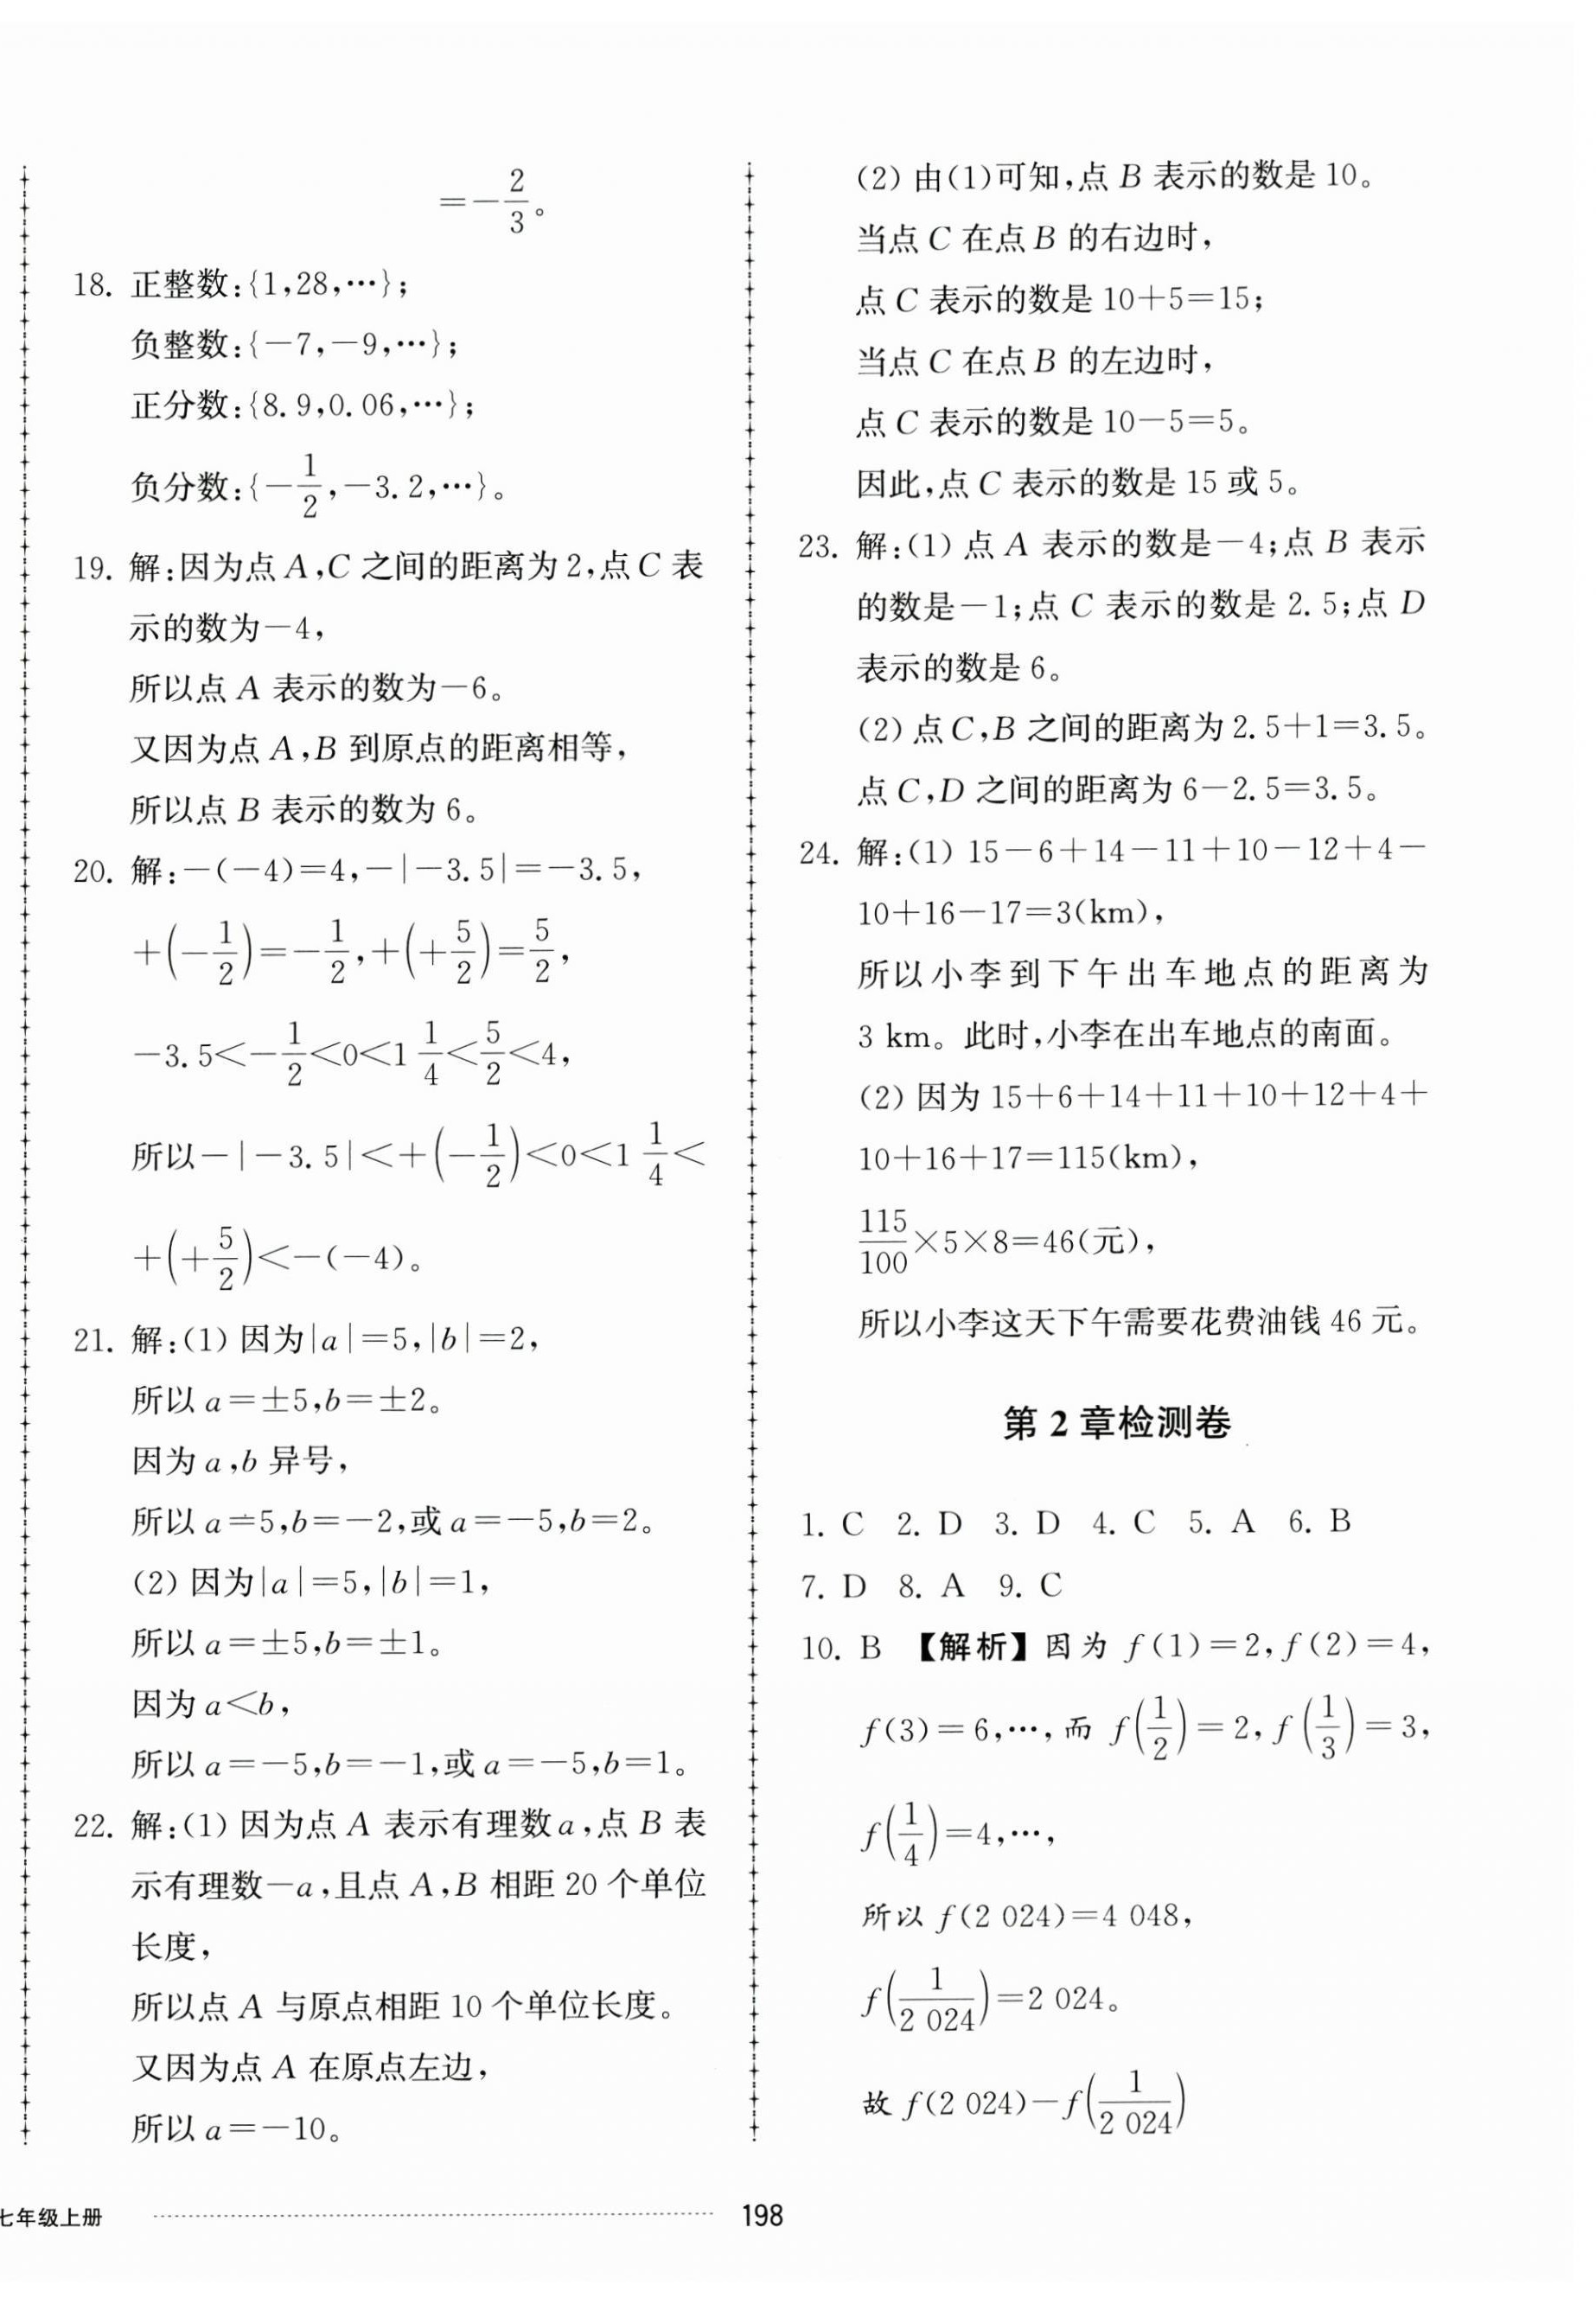 =−2/3。
18. 正整数:{1,28,…};
负整数:{−7,−9,…};
正分数:{8.9,0.06,…};
负分数:{−1/2,−3.2,…}。
19. 解:因为点A,C之间的距离为2,点C表
示的数为−4,
所以点A表示的数为−6。
又因为点A,B到原点的距离相等,
所以点B表示的数为6。
20. 解:−(−4)=4,−|−3.5|=−3.5,
+(−1/2)=−1/2,+(+5/2)=5/2,
−3.5<−1/2<0<1 1/4<5/2<4,
所以−|−3.5|<+(−1/2)<0<1 1/4<
+(+5/2)<−(−4)。
21. 解:(1)因为|a|=5,|b|=2,
所以a=±5,b=±2。
因为a,b异号,
所以a=5,b=−2,或a=−5,b=2。
(2)因为|a|=5,|b|=1,
所以a=±5,b=±1。
因为a<b,
所以a=−5,b=−1,或a=−5,b=1。
22. 解:(1)因为点A表示有理数a,点B表
示有理数−a,且点A,B相距20个单位
长度,
所以点A与原点相距10个单位长度。
又因为点A在原点左边,
所以a=−10。
(2)由(1)可知,点B表示的数是10。
当点C在点B的右边时,
点C表示的数是10+5=15;
当点C在点B的左边时,
点C表示的数是10−5=5。
因此,点C表示的数是15或5。
23. 解:(1)点A表示的数是−4;点B表示
的数是−1;点C表示的数是2.5;点D
表示的数是6。
(2)点C,B之间的距离为2.5+1=3.5。
点C,D之间的距离为6−2.5=3.5。
24. 解:(1)15−6+14−11+10−12+4−
10+16−17=3(km),
所以小李到下午出车地点的距离为
3 km。此时,小李在出车地点的南面。
(2)因为15+6+14+11+10+12+4+
10+16+17=115(km),
115/100×5×8=46(元),
所以小李这天下午需要花费油钱46元。
第2章检测卷
1. C 2. D 3. D 4. C 5. A 6. B
7. D 8. A 9. C
10. B 【解析】因为f(1)=2,f(2)=4,
f(3)=6,…,而f(1/2)=2,f(1/3)=3,
f(1/4)=4,…,
所以f(2 024)=4 048,
f(1/2 024)=2 024。
故f(2 024)−f(1/2 024)
七年级上册
198